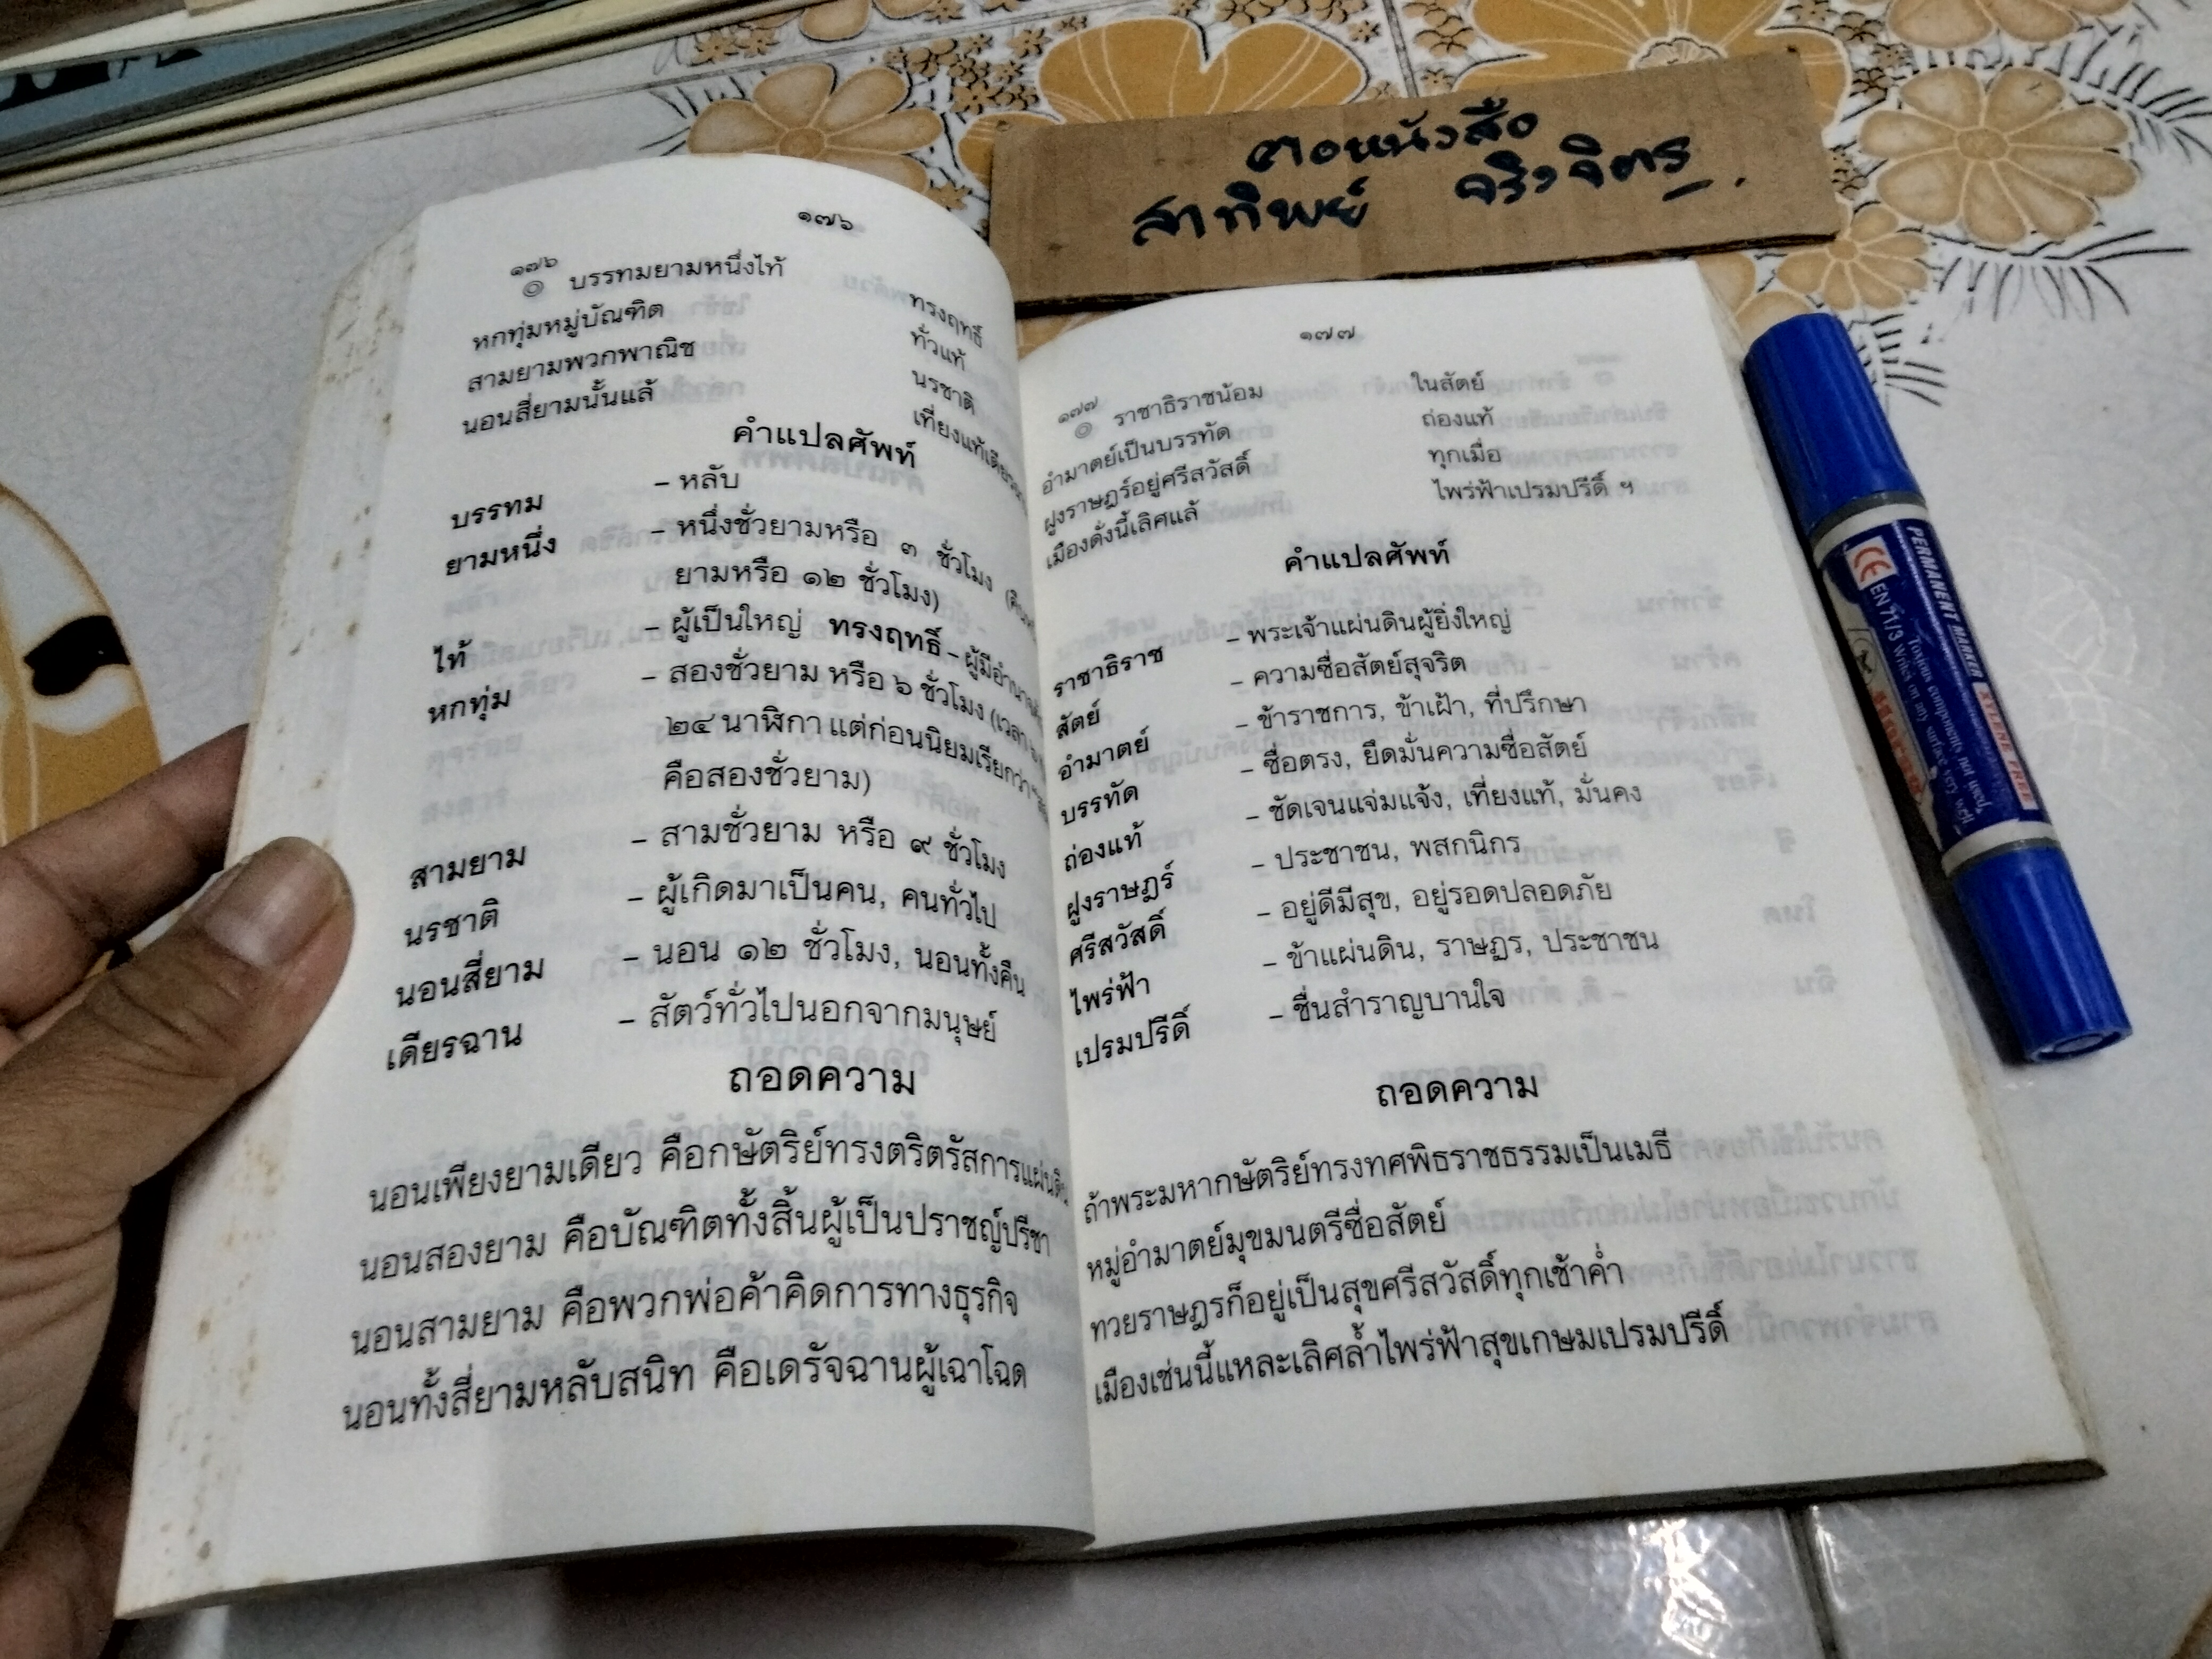 ฅอหนังสือ
สาทิพย์ จริงจิตร
๑๗๖
๑๗๖
๏ บรรทมยามหนึ่งไท้ ทรงฤทธิ์
หกทุ่มหมู่บัณฑิต ทั่วแท้
สามยามพวกพาณิช นรชาติ
นอนสี่ยามนั้นแล้ เที่ยงแท้
คำแปลศัพท์
บรรทม – หลับ
ยามหนึ่ง – หนึ่งชั่วยามหรือ ๓ ชั่วโมง
ยามหรือ ๑๒ ชั่วโมง)
ไท้ – ผู้เป็นใหญ่ ทรงฤทธิ์ – ผู้มีอำนาจ
หกทุ่ม – สองชั่วยาม หรือ ๖ ชั่วโมง (เวลา
๒๔ นาฬิกา แต่ก่อนนิยมเรียกว่า
คือสองชั่วยาม)
สามยาม – สามชั่วยาม หรือ ๙ ชั่วโมง
นรชาติ – ผู้เกิดมาเป็นคน, คนทั่วไป
นอนสี่ยาม – นอน ๑๒ ชั่วโมง, นอนทั้งคืน
เดียรฉาน – สัตว์ทั่วไปนอกจากมนุษย์
ถอดความ
นอนเพียงยามเดียว คือกษัตริย์ทรงตริตรัสการแผ่นดิน
นอนสองยาม คือบัณฑิตทั้งสิ้นผู้เป็นปราชญ์ปรีชา
นอนสามยาม คือพวกพ่อค้าคิดการทางธุรกิจ
นอนทั้งสี่ยามหลับสนิท คือเดรัจฉานผู้เฉาโฉด
๑๗๗
๑๗๗
๏ ราชาธิราชน้อม ในสัตย์
อำมาตย์เป็นบรรทัด ถ่องแท้
ฝูงราษฎร์อยู่ศรีสวัสดิ์ ทุกเมื่อ
เมืองดั่งนี้เลิศแล้ ไพร่ฟ้าเปรมปรีดิ์ ฯ
คำแปลศัพท์
ราชาธิราช – พระเจ้าแผ่นดินผู้ยิ่งใหญ่
สัตย์ – ความซื่อสัตย์สุจริต
อำมาตย์ – ข้าราชการ, ข้าเฝ้า, ที่ปรึกษา
บรรทัด – ซื่อตรง, ยึดมั่นความซื่อสัตย์
ถ่องแท้ – ชัดเจนแจ่มแจ้ง, เที่ยงแท้, มั่นคง
ฝูงราษฎร์ – ประชาชน, พสกนิกร
ศรีสวัสดิ์ – อยู่ดีมีสุข, อยู่รอดปลอดภัย
ไพร่ฟ้า – ข้าแผ่นดิน, ราษฏร, ประชาชน
เปรมปรีดิ์ – ชื่นสำราญบานใจ
ถอดความ
ถ้าพระมหากษัตริย์ทรงทศพิธราชธรรมเป็นเมธี
หมู่อำมาตย์มุขมนตรีซื่อสัตย์
ทวยราษฎรก็อยู่เป็นสุขศรีสวัสดิ์ทุกเช้าค่ำ
เมืองเช่นนี้แหละเลิศล้ำไพร่ฟ้าสุขเกษมเปรมปรีดิ์
PERMANENT MARKER XYLENE FREE
CE EN 71/3 Writes on any surface very well
Horse